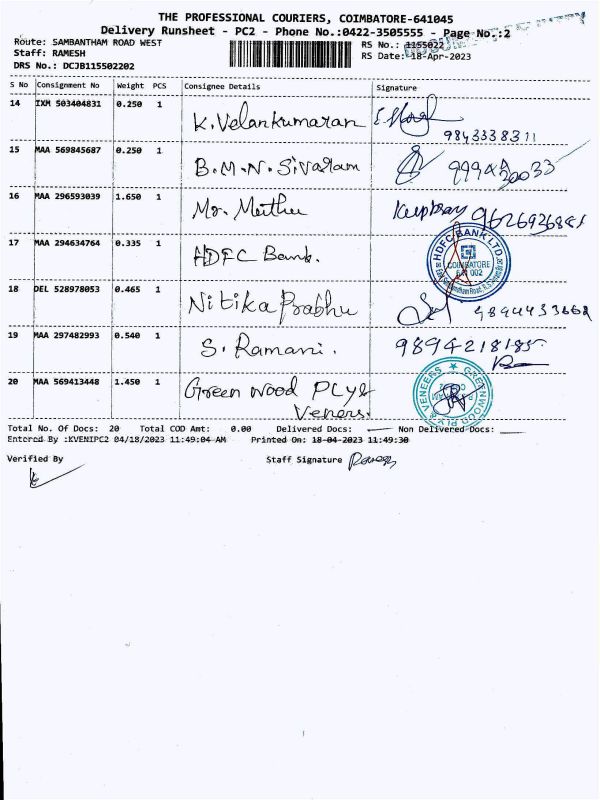 THE PROFESSIONAL COURIERS, COIMBATORE-641045
Delivery Runsheet - PC2 - Phone No.:0422-3505555 - Page No.:2
Route: SAMBANTHAM ROAD WEST
RS No.: 1155022
Staff: RAMESH
RS Date: 18-Apr-2023
DRS No.: DCJB115502202
S No Consignment No Weight PCS Consignee Details Signature
14 IXM 503404831 0.250 1 K. Velankumaran
9843338311
15 MAA 569845687 0.250 1 B.M.N. Sivaram
16 MAA 296593039 1.650 1 Mr. Muthu 9626936881
17 MAA 294634764 0.335 1 HDFC Bank.
HDFC BANK LTD.
COIMBATORE
641 002
18 DEL 528978053 0.465 1 Nitika Prabhu 9894433662
19 MAA 297482993 0.540 1 S. Ramani. 9894218185
20 MAA 569413448 1.450 1 Green wood PLY &
Veners.
GREENWOOD PLY & VENEERS
Total No. Of Docs: 20 Total COD Amt: 0.00 Delivered Docs: Non Delivered Docs:
Entered By :KVENIPC2 04/18/2023 11:49:04 AM Printed On: 18-04-2023 11:49:30
Verified By Staff Signature Ramesh